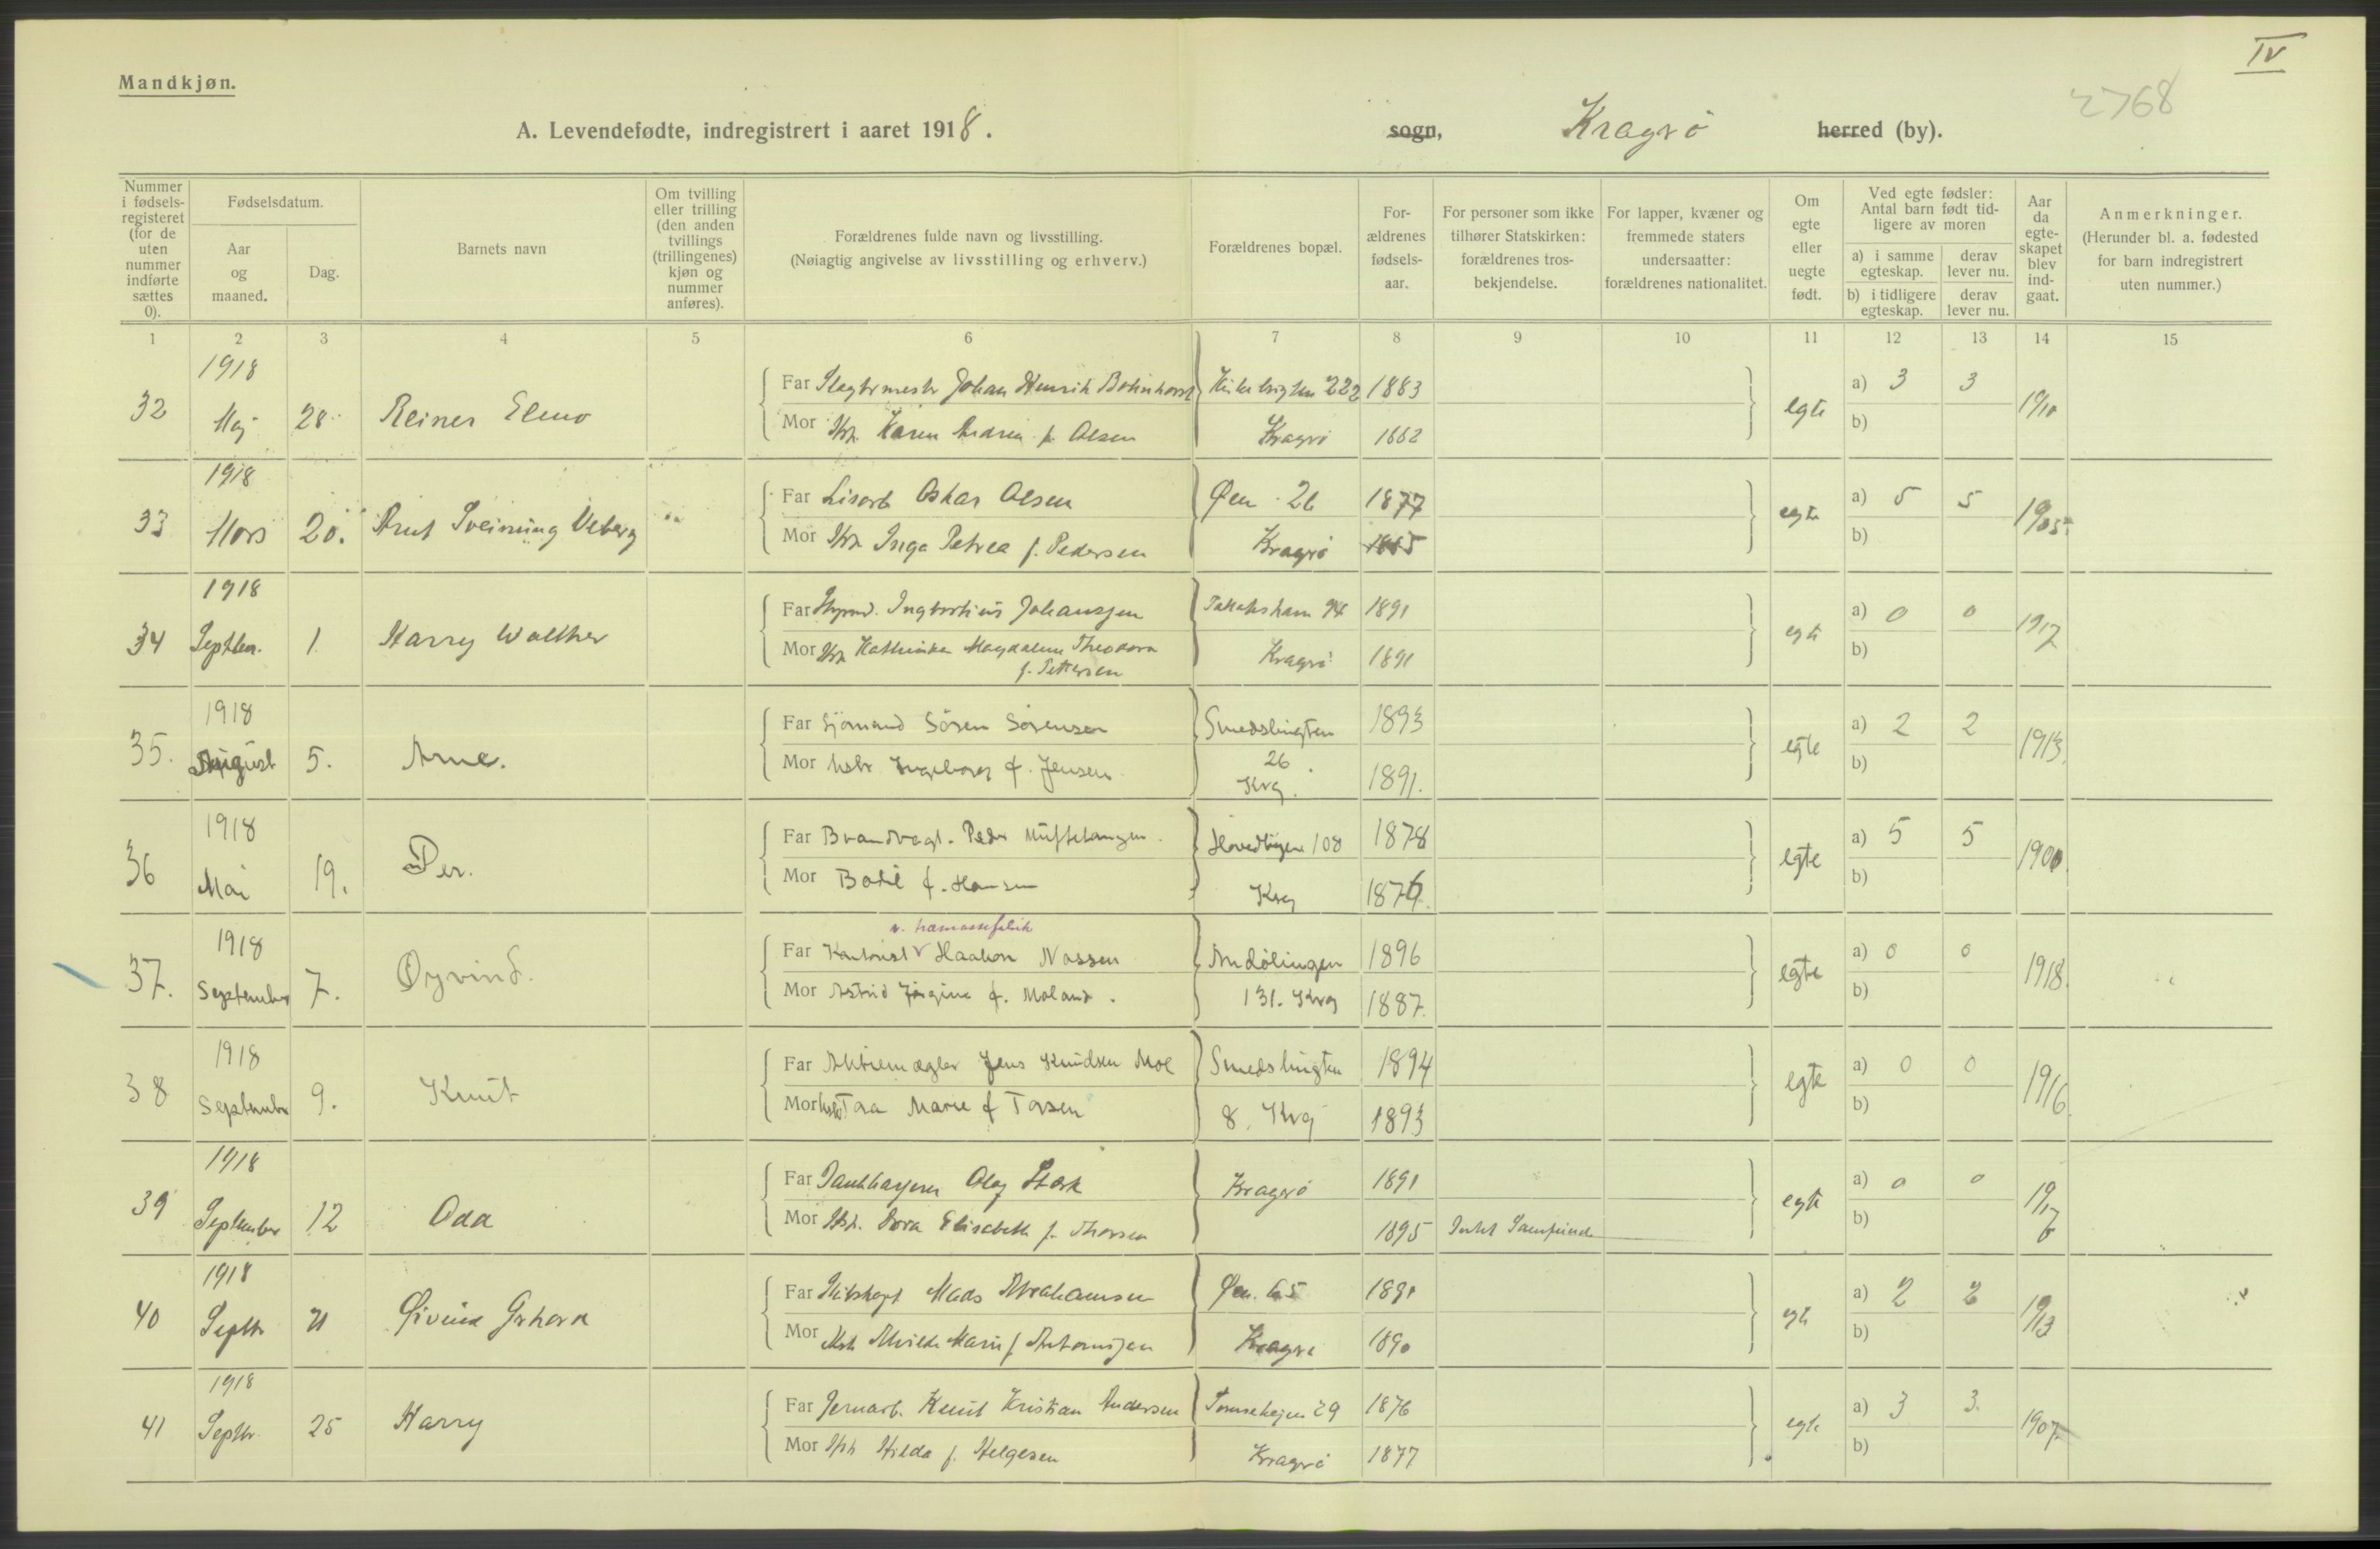 IV
Mandkjøn.
2768
A. Levendefødte, indregistrert i aaret 1918.
sogn, Kragrø herred (by).
Nummer i fødsels-registeret (for de uten nummer indførte sættes 0).
Fødselsdatum.
Aar og maaned.
Dag.
Barnets navn
Om tvilling eller trilling (den anden tvillings (trillingenes) kjøn og nummer anføres).
Forældrenes fulde navn og livsstilling.
(Nøiagtig angivelse av livsstilling og erhverv.)
Forældrenes bopæl.
For-ældrenes fødsels-aar.
For personer som ikke tilhører Statskirken: forældrenes tros-bekjendelse.
For lapper, kvæner og fremmede staters undersaatter: forældrenes nationalitet.
Om egte eller uegte født.
Ved egte fødsler: Antal barn født tid-ligere av moren
a) i samme egteskap. derav lever nu.
b) i tidligere egteskap. derav lever nu.
Aar da egte-skapet blev ind-gaat.
Anmerkninger.
(Herunder bl. a. fødested for barn indregistrert uten nummer.)
1 2 3 4 5 6 7 8 9 10 11 12 13 14 15
1918
32 Maj 28 Reiner Elmo
Far Slagtermestr Johan Henrik 222 1883
Mor Karen Andrea f. Olsen Kragrø
egte a) 3 3 1910
b)
1918
33 Mars 20. Sveinung
Far Oskar Olsen Øen 26 1877
Mor Inga Petrea f. Pedersen Kragrø
egte a) 5 5 1905
b)
1918
34 Septber. 1 Harry Walther
Far Styrmd. Johansen 94 1891
Mor Kathinka Magdalene Theodora
f. Pettersen Kragrø 1891
egte a) 0 0 1917
b)
1918
35. August 5. Arne.
Far Sjömand Sören Sörensen Smedsbugten 1893
Mor Ingeborg f. Jensen 26 Krg. 1891.
egte a) 2 2 1913.
b)
1918
36 Mai 19. Per.
Far Brandvagt. Peder 108 1878
Mor Bodil f. Hansen Krg 1876.
egte a) 5 5 1900.
b)
1918
37. September 7. Øyvind.
Far Kontorist Haakon Nossen 1896
Mor Astrid Jörgine f. Moland. 131. Krg 1887.
egte a) 0 0 1918.
b)
1918
38 September 9. Knut
Far Aktiemægler Jens Knudsen Moe Smedsbugten 1894
Mor Toa Marie f Torsen 8. Krg 1893
egte a) 0 0 1916.
b)
1918
39 September 12 Odd
Far Olaf Stærk Kragerø 1891
Mor Dora Elisabeth f. Thorsen 1895
egte a) 0 0
b)
1918
40 Septbr 21 Øivind Gerhard
Far Mads Abrahamsen Øen. 65 1891
Mor Alvilde Marie f Antonisen Kragrø 1890
egte a) 2 2 1913
b)
1918
41 Septbr. 25 Harry
Far Jernarb. Knut Kristian Andersen 29 1876
Mor Hilda f. Helgesen Kragrø 1877
egte a) 3 3. 1907
b)